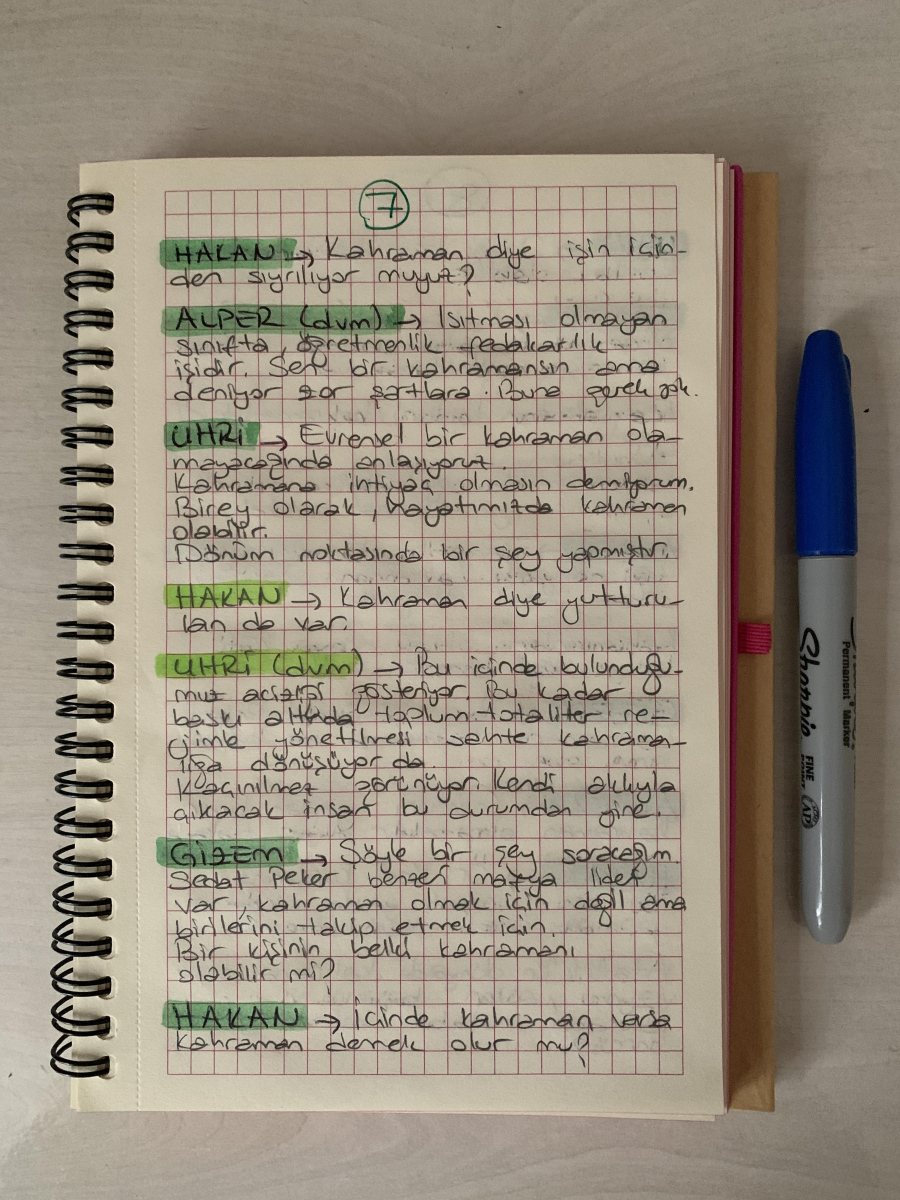 7
HAKAN → Kahraman diye işin için-
den sıyrılıyor muyuz?
ALPER (dvm) → Isıtması olmayan
sınıfta, öğretmenlik fedakarlık
işidir. Sen bir kahramansın ama
deniyor zor şartlara. Buna gerek yok.
UHRİ → Evrensel bir kahraman ola-
mayacağında anlaşıyoruz.
Kahramana ihtiyaç olmasın demiyorum.
Birey olarak, hayatımızda kahraman
olabilir.
Dönüm noktasında bir şey yapmıştır.
HAKAN → Kahraman diye yutturu-
lan da var.
UHRİ (dvm) → Bu içinde bulunduğu-
muz gösteriyor. Bu kadar
baskı altında toplum totaliter re-
jimle yönetilmesi sahte kahrama-
lığa dönüşüyor da.
Kaçınılmaz görünüyor. Kendi aklıyla
çıkacak insan bu durumdan yine.
GİZEM → Şöyle bir şey soracağım.
Sedat Peker benzeri mafya lideri
var, kahraman olmak için değil ama
birilerini takip etmek için.
Bir kişinin belki kahramanı
olabilir mi?
HAKAN → İçinde kahraman varsa
kahraman demek olur mu?
Sharpie
Permanent Marker
FINE
POINT
AP